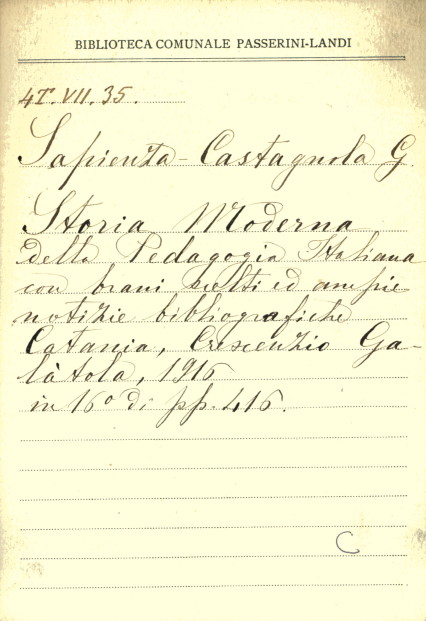 BIBLIOTECA COMUNALE PASSERINI-LANDI
4T.VII.35.
Sapienza-Castagnola G
Storia Moderna
della Pedagogia Italiana
con brani scelti ed ampie
notizie bibliografiche
Catania, Crescenzio Ga-
làtola, 1916
in 16º di pp. 416.
C